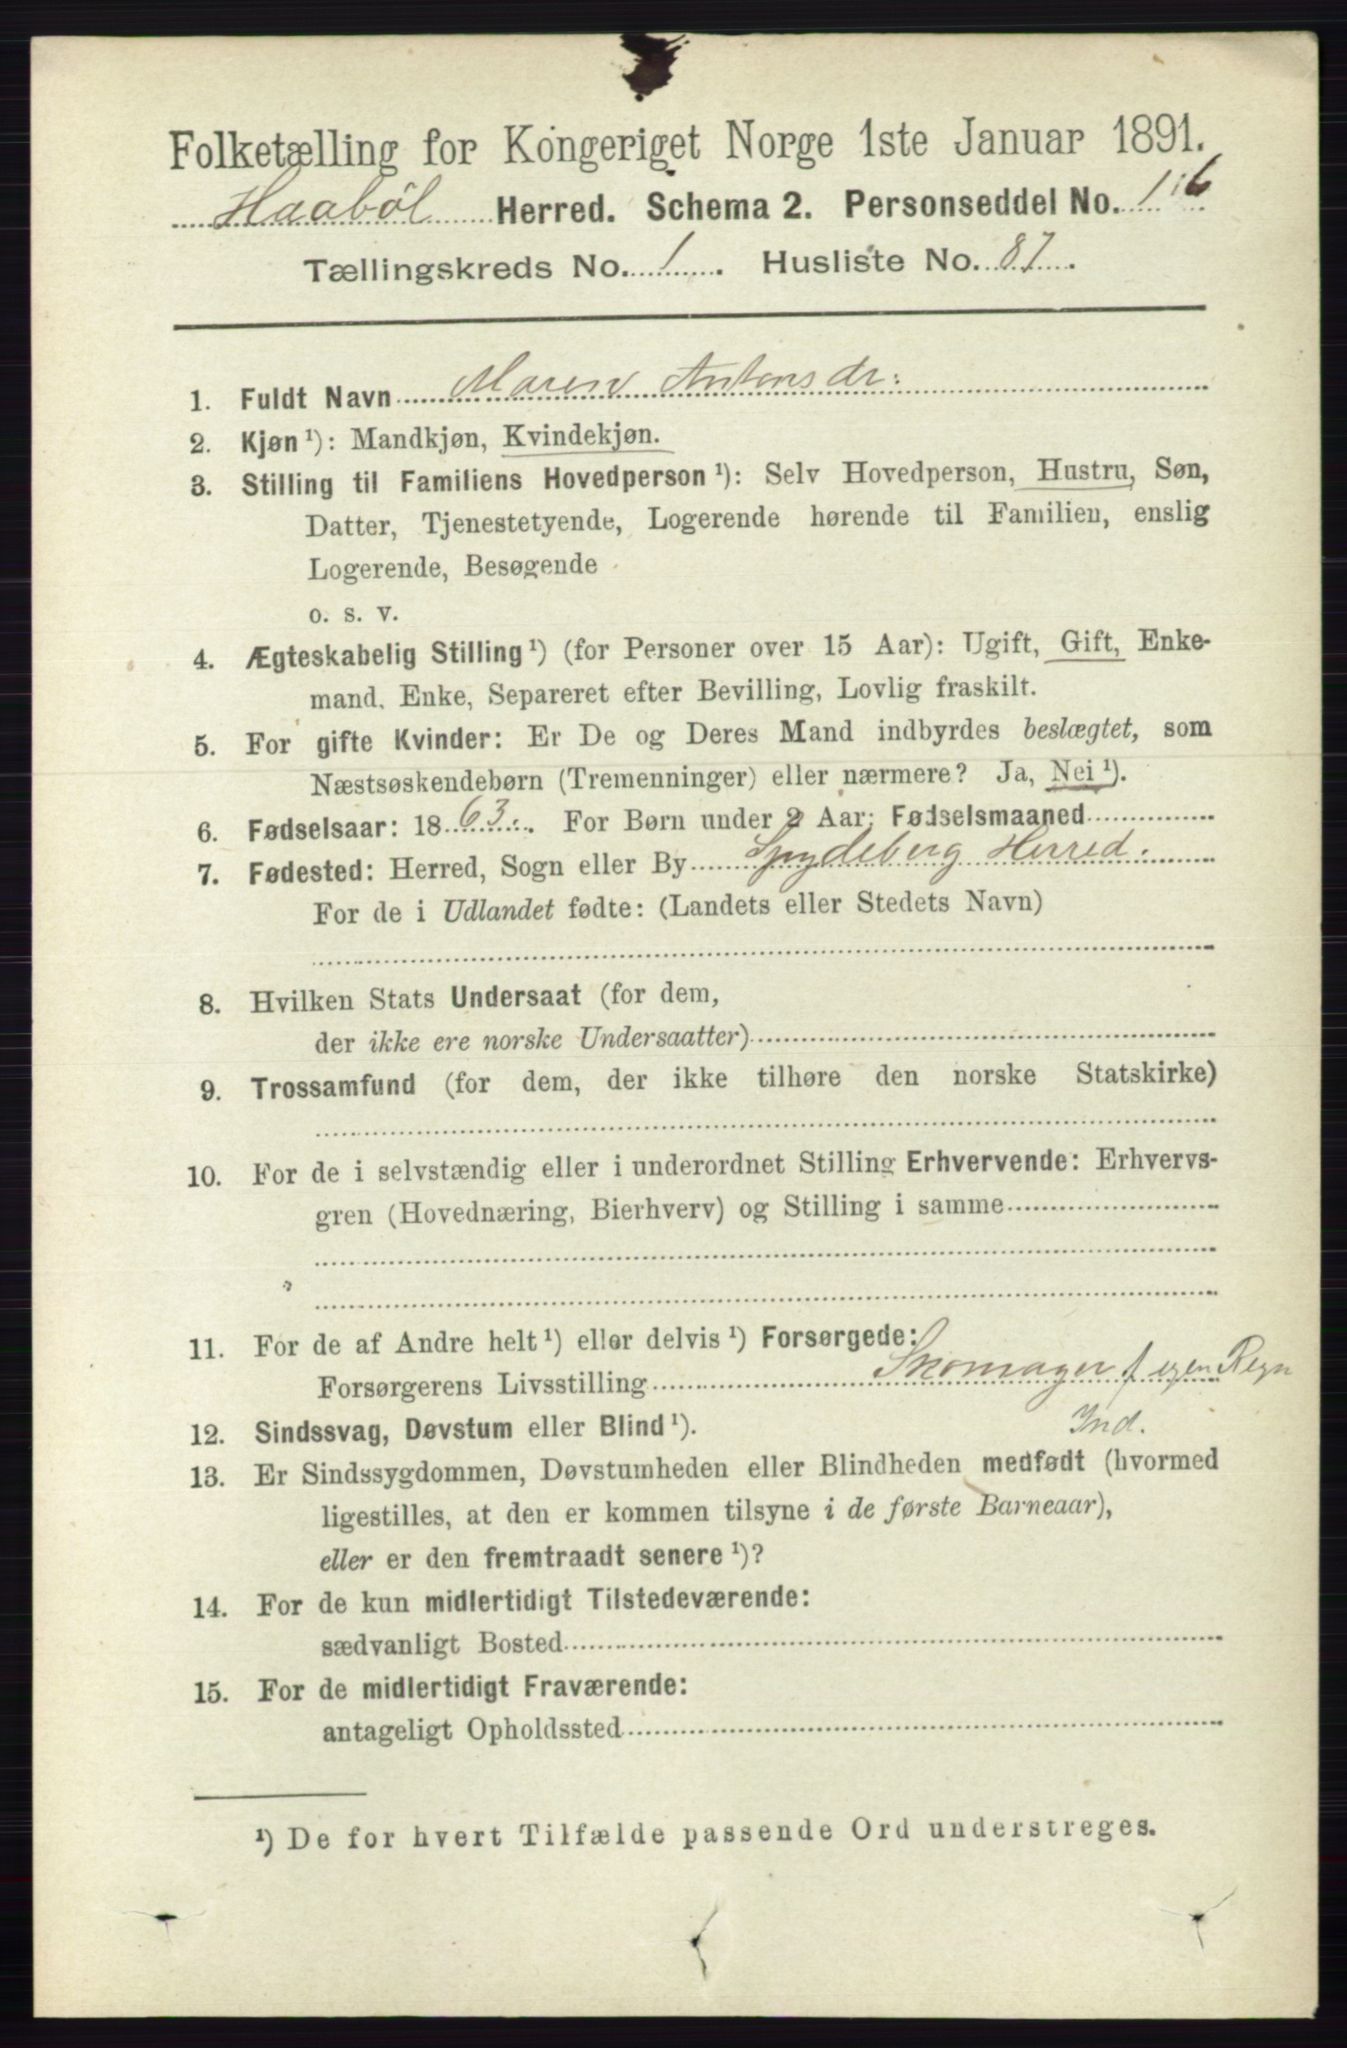 Folketælling for Kongeriget Norge 1ste Januar 1891.
Haabøl Herred. Schema 2. Personseddel No.
Tællingskreds No. 1. Husliste No. 87.
1. Fuldt Navn Maren Antonsdr:
2. Kjøn ¹): Mandkjøn, Kvindekjøn.
3. Stilling til Familiens Hovedperson ¹): Selv Hovedperson, Hustru, Søn,
Datter, Tjenestetyende, Logerende hørende til Familien, enslig
Logerende, Besøgende
o. s. v.
4. Ægteskabelig Stilling ¹) (for Personer over 15 Aar): Ugift, Gift, Enke-
mand, Enke, Separeret efter Bevilling, Lovlig fraskilt.
5. For gifte Kvinder: Er De og Deres Mand indbyrdes beslægtet, som
Næstsøskendebørn (Tremenninger) eller nærmere? Ja, Nei ¹).
6. Fødselsaar: 1863. For Børn under 2 Aar: Fødselsmaaned
7. Fødested: Herred, Sogn eller By Spydeberg Herred.
For de i Udlandet fødte: (Landets eller Stedets Navn)
8. Hvilken Stats Undersaat (for dem,
der ikke ere norske Undersaatter)
9. Trossamfund (for dem, der ikke tilhøre den norske Statskirke)
10. For de i selvstændig eller i underordnet Stilling Erhvervende: Erhvervs-
gren (Hovednæring, Bierhverv) og Stilling i samme
11. For de af Andre helt ¹) eller delvis ¹) Forsørgede:
Forsørgerens Livsstilling Skomager f egen Regn
12. Sindssvag, Døvstum eller Blind ¹). Ind.
13. Er Sindssygdommen, Døvstumheden eller Blindheden medfødt (hvormed
ligestilles, at den er kommen tilsyne i de første Barneaar),
eller er den fremtraadt senere ¹)?
14. For de kun midlertidigt Tilstedeværende:
sædvanligt Bosted
15. For de midlertidigt Fraværende:
antageligt Opholdssted
¹) De for hvert Tilfælde passende Ord understreges.